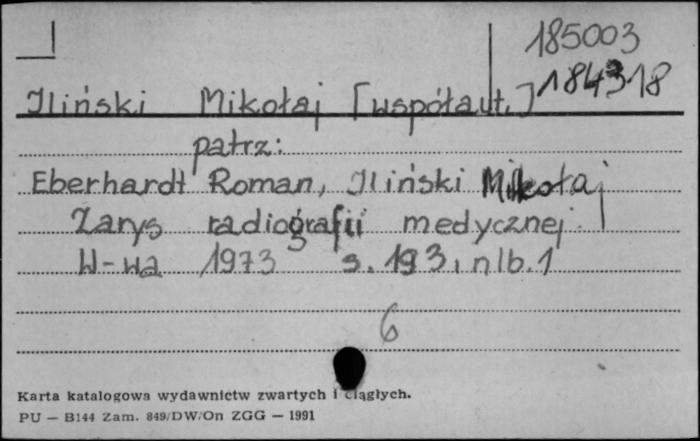 185003
184318
Iliński Mikołaj [współaut.]
patrz:
Eberhardt Roman, Iliński Mikołaj
Zarys radiografii medycznej
W-wa 1973 s. 193, nlb. 1
6
Karta katalogowa wydawnictw zwartych i ciągłych.
PU — B144 Zam. 849/DW/On ZGG — 1991